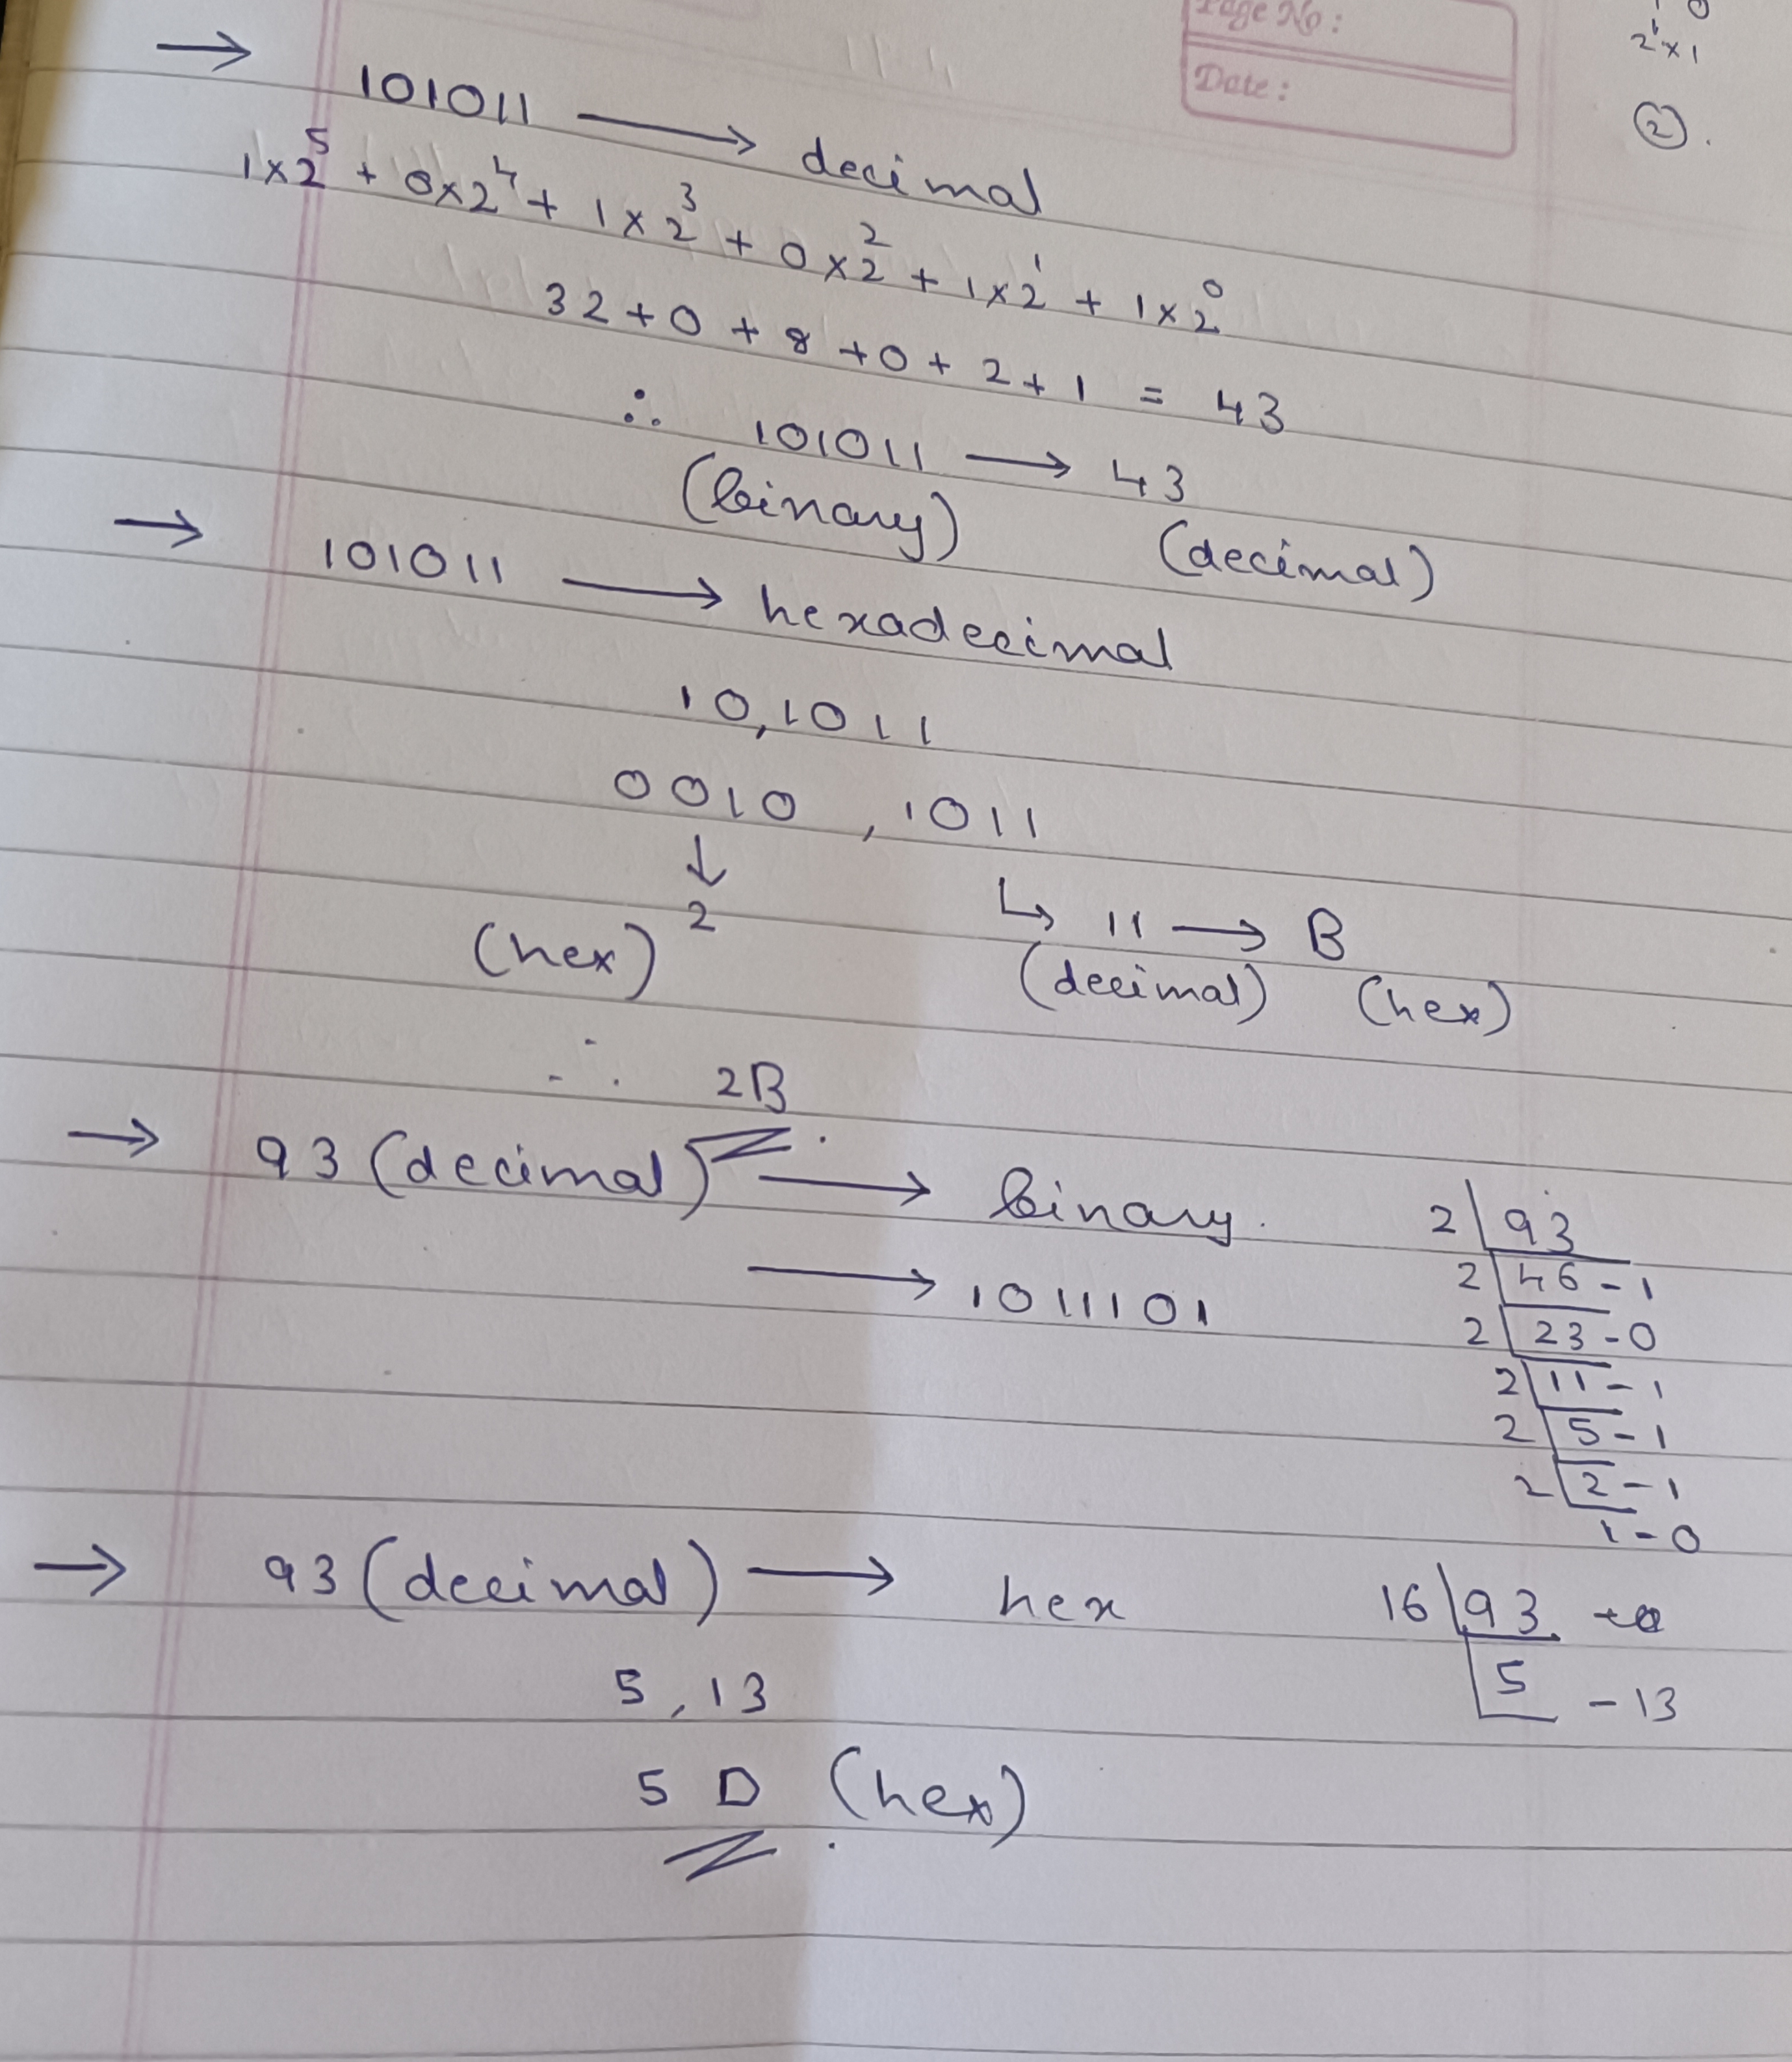 Page No:
Date:
0
2¹×1
②.
→ 101011 → decimal
1×2⁵ + 0×2⁴ + 1×2³ + 0×2² + 1×2¹ + 1×2⁰
32+0+8+0+2+1 = 43
∴ 101011 → 43
(binary) (decimal)
→ 101011 → hexadecimal
10,1011
0010 , 1011
↓ ↳ 11 → B
2
(hex) (decimal) (hex)
∴ 2B
→ 93 (decimal) → binary.
→ 1011101
2 | 93
2 | 46 - 1
2 | 23 - 0
2 | 11 - 1
2 | 5 - 1
2 | 2 - 1
1 - 0
→ 93 (decimal) → hex
16 | 93
5 - 13
5 , 13
5 D (hex)